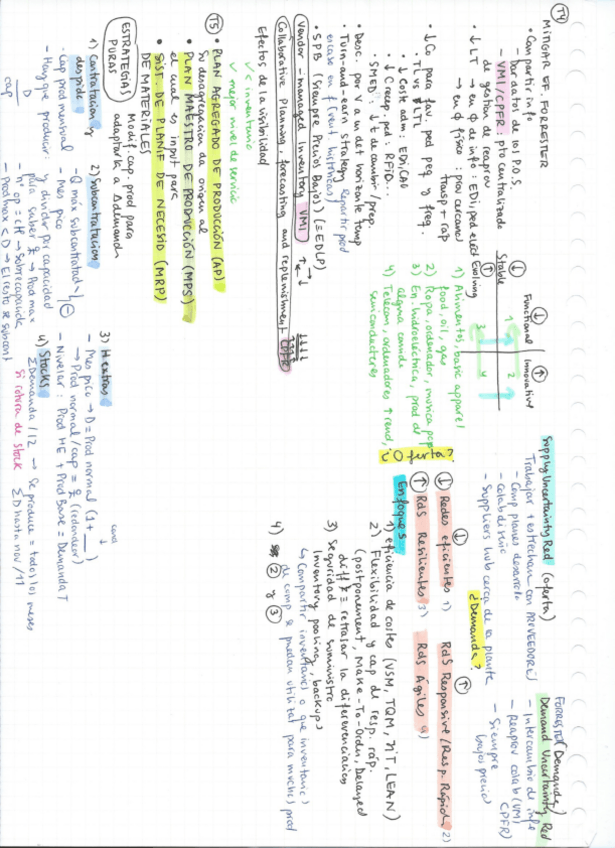 T4
MITIGAR EF. FORRESTER
• Compartir info
- Dar datos de los P.O.S.
- VMI/CPFR: pto centralizado de gestion de reaprov
• ↓ LT → en ф de info: EDI, ped elect
→ en ф físico: prov cercanos
transp + rap
• ↓ Co para fav. ped peq y freq.
• TL vs LTL
• ↓ Coste adm: EDI, CAO
• ↓ C recep. ped: RFID...
• SMED: ↓ t de cambio/prep.
• Desc. por V a un det horizonte temp
• Turn-and-earn strategy (Repartir prod
escaso en f(vent históricas))
• SPB (Siempre Precios Bajos) (=EDLP)
Vendor-managed Inventory VMI
Collaborative Planning, forecasting and replenishment CPFR
Efectos de la visibilidad
✓ < inventario
✓ mejor nivel de servicio
↓ Functional
↑ Innovative
↓ Stable
Evolving
1 2
3 4
1) Alimentos, basic apparel
food, oil, gas
2) Ropa, ordenador, musica pop
3) En. hidroeléctrica, prod de
alguna comida
4) Telecom, ordenadores ↑ rend,
semiconductores
Supply Uncertainty Red (oferta)
Trabajar + estrecham con PROVEEDORES
- Comp planes desarrollo
- Suppliers hub cerca de la planta
FORRESTER (Demanda)
Demand Uncertainty Red
- Intercambio de info
- Reaprov colab (VMI
CPFR)
- Siempre
bajos precios
¿Demanda?
¿Oferta?
↓ ↑
↓ Redes eficientes 1) RdS Responsive/(Resp. Rápida) 2)
↑ RdS Resilientes 3) RdS Ágiles 4)
Enfoques
1) eficiencia de costes (VSM, TQM, JIT, LEAN)
2) Flexibilidad y cap de resp. ráp.
(postponement, Make-To-Order, Delayed
diff) = retrasar la diferenciacion
3) Seguridad de suministro
Inventory pooling, backups
↳ Compartir inventarios o que inventarios
de comp se puedan utilizar para muchos prod
4) 2 y 3
T5
• PLAN AGREGADO DE PRODUCCIÓN (AP)
Su desagregación da origen al
• PLAN MAESTRO DE PRODUCCIÓN (MPS)
el cual es input para
• SIST. DE PLANIF DE NECESID (MRP)
DE MATERIALES
ESTRATEGIAS PURAS
Modif. cap. prod para
adaptarla a Δ demanda
1) Contratacion y
despido
- Cap prod mensual
- Hay que producir
D
cap
2) Subcontratacion
Q max subcontratada
- Mes pico
y dividir por capacidad
para saber → Prod max
- Prod max < D → El resto se subcont
3) H extras
- Mes pico → D = Prod normal (1 + __)
→ Prod normal/cap = (redondear)
- Nivelar: Prod HE + Prod Base = Demanda T
4) Stocks
Σ Demanda / 12 → Se produce = todos los meses
Si rotura de stock Σ D hasta nov / 11